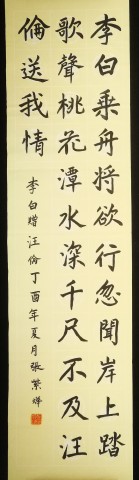 李白乘舟將欲行忽聞岸上踏
歌聲桃花潭水深千尺不及汪
倫送我情
李白贈汪倫丁酉年夏月張縈嬅